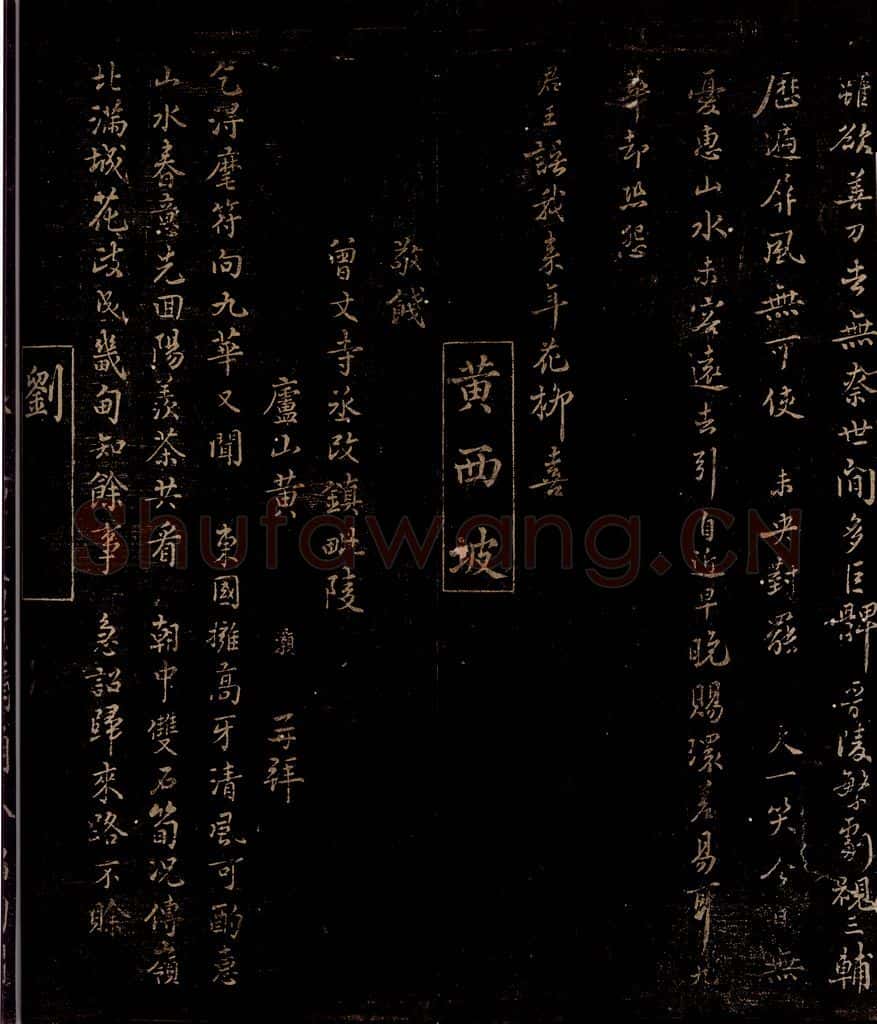 雖欲善刀去無奈世間多巨髀晋陵繁劇視三輔
歷遍屏風無可使 未央對罷 天一笑今日無
憂惠山水未容遠去引自近早晚賜環差易耳九
華却恐怨
君王語我来年花柳喜
黄西坡
敬餞
曾文寺丞改鎮毗陵
廬山黄 灝 再拜
乞得麾符向九華又聞 東國擁高牙清風可酌惠
山水春意先回陽羨茶共看 朝中雙石筍况傳嶺
北滿城花政成畿甸知餘事 急詔歸來路不賒
劉
Shufawang.CN